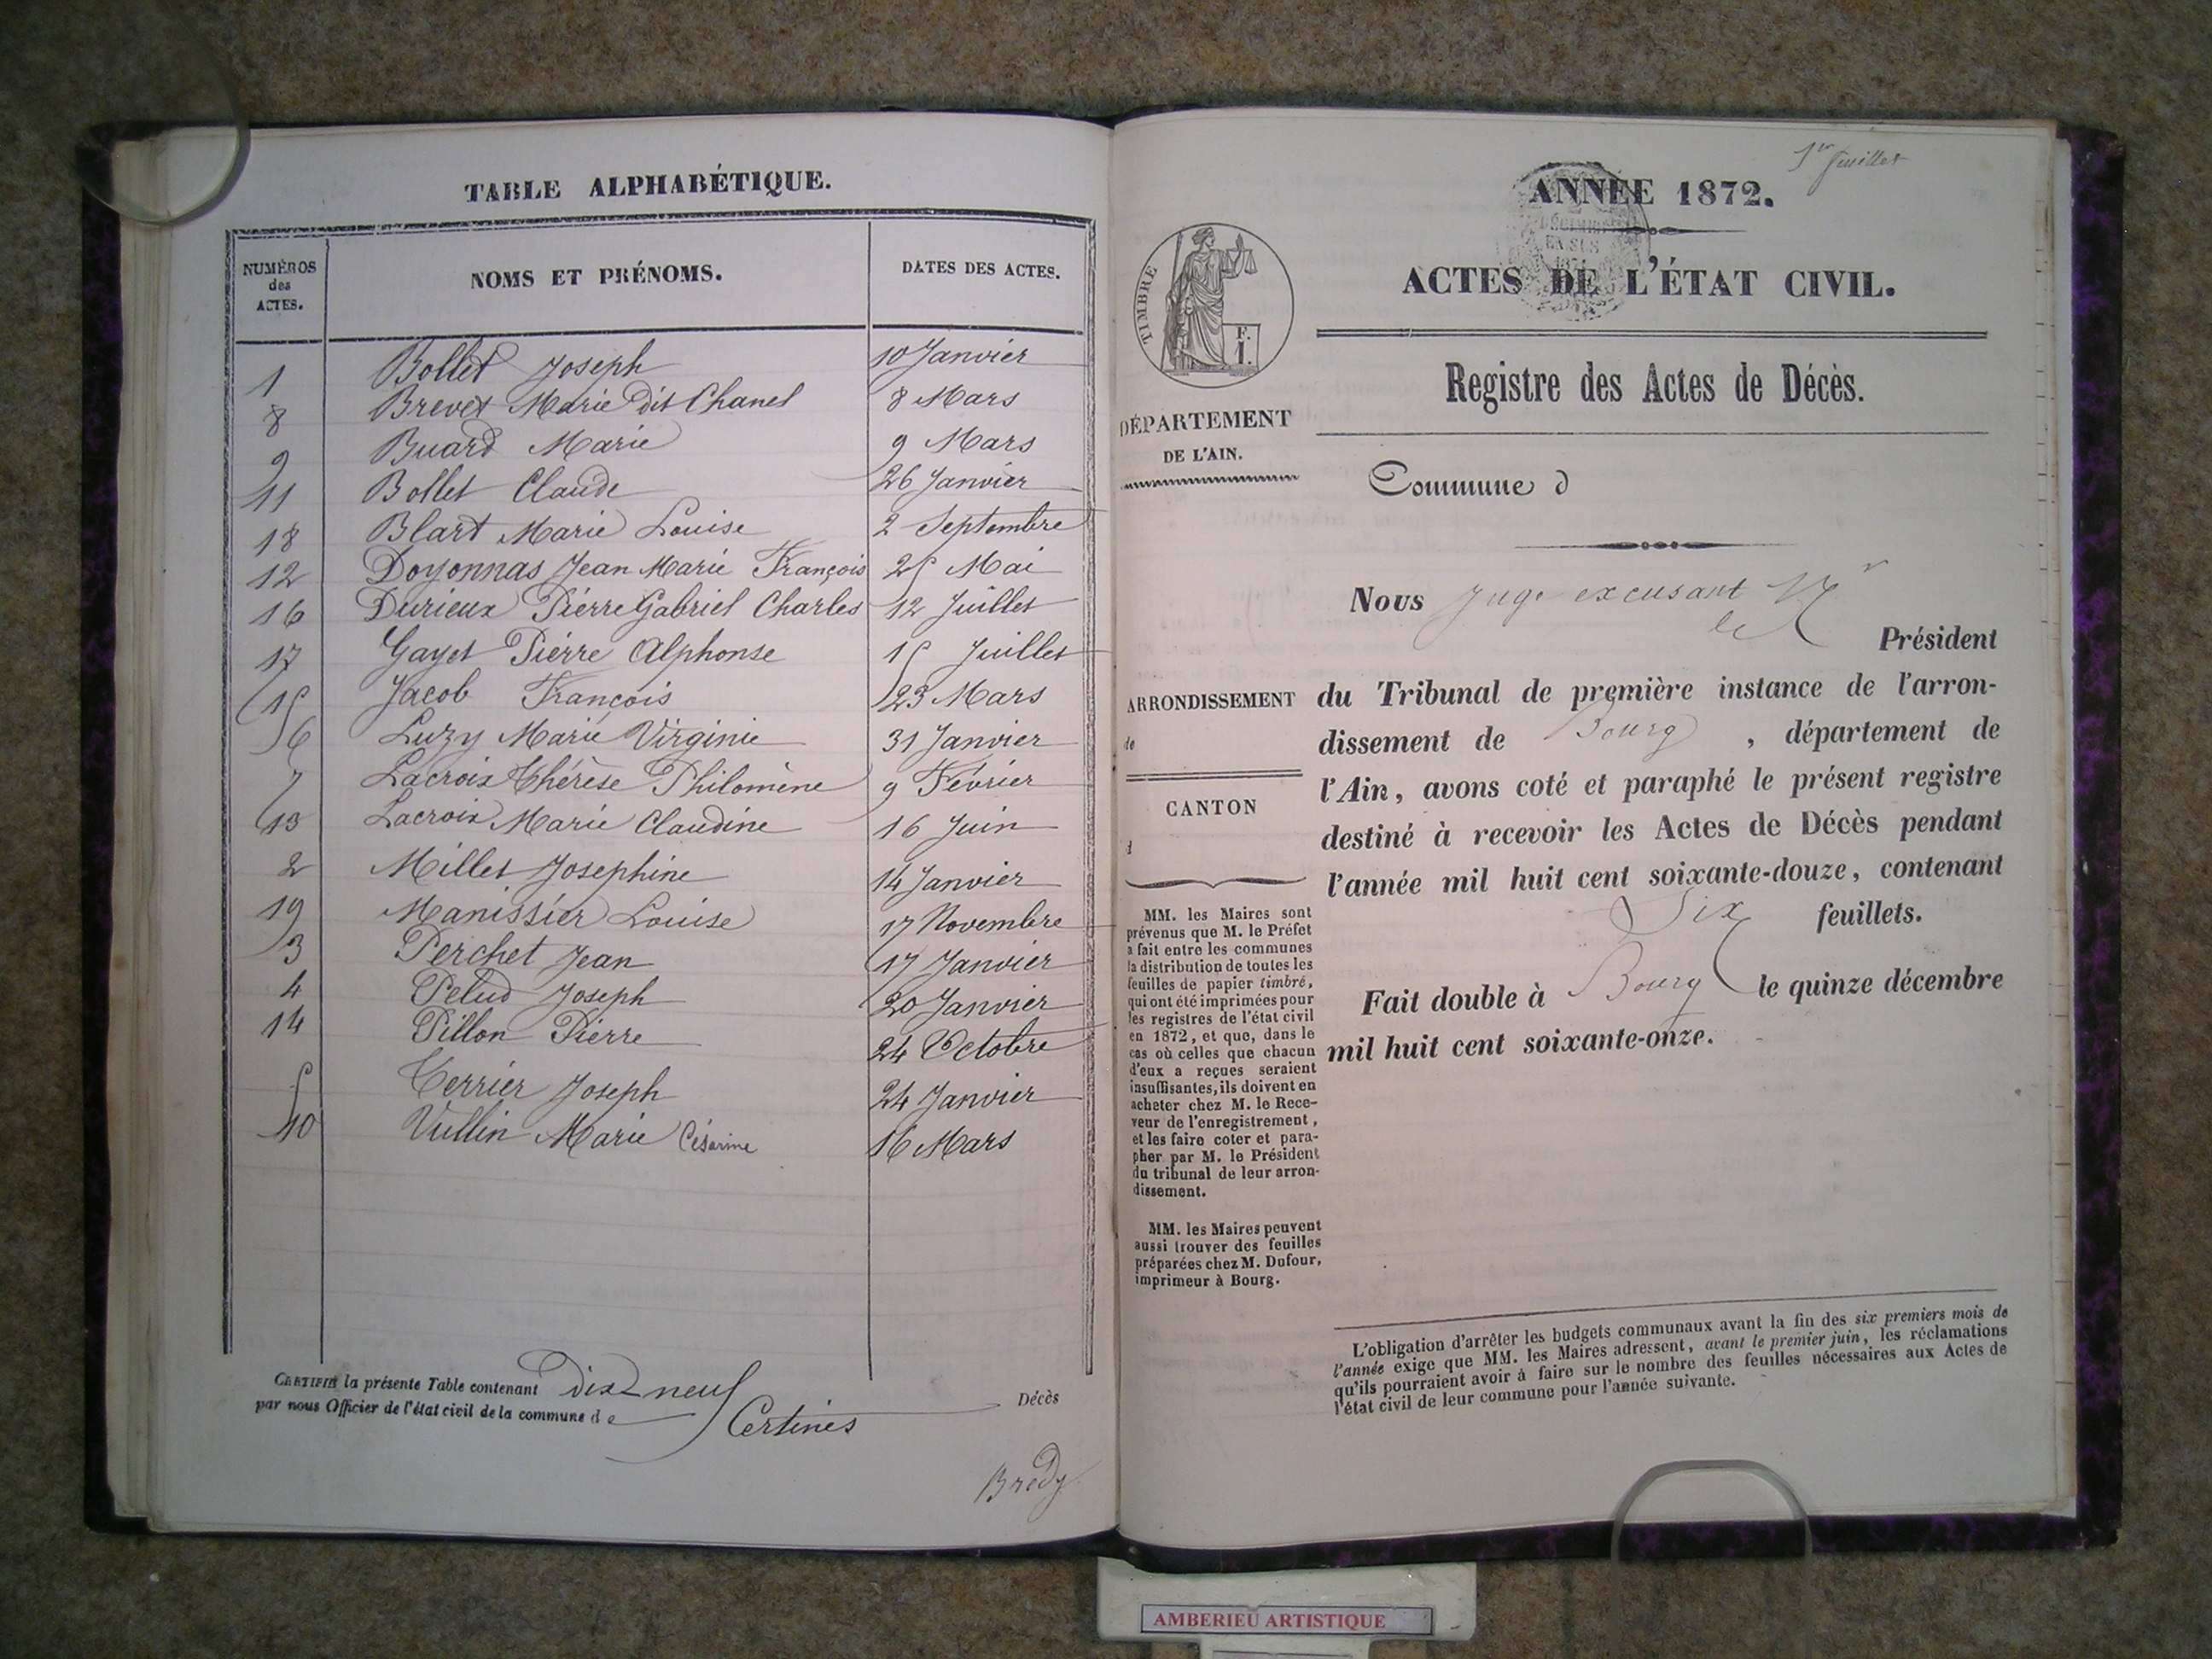 TABLE ALPHABÉTIQUE.
NUMÉROS des ACTES. NOMS ET PRÉNOMS. DATES DES ACTES.
1 Bollet Joseph 10 Janvier
8 Brevet Marie dit Chanel 8 Mars
9 Buard Marie 9 Mars
11 Bollet Claude 26 Janvier
18 Blart Marie Louise 2 Septembre
12 Doyonnas Jean Marie François 25 Mai
16 Durieux Pierre Gabriel Charles 12 Juillet
17 Gayet Pierre Alphonse 15 Juillet
15 Jacob François 23 Mars
6 Luzy Marie Virginie 31 Janvier
7 Lacroix Thérèse Philomène 9 Février
13 Lacroix Marie Claudine 16 Juin
2 Millet Josephine 14 Janvier
19 Manissier Louise 17 Novembre
3 Perchet Jean 17 Janvier
4 Pelud Joseph 20 Janvier
14 Pillon Pierre 24 Octobre
5 Terrier Joseph 24 Janvier
10 Vullin Marie Césarine 16 Mars
CERTIFIÉ la présente Table contenant Dix neuf Décès
par nous Officier de l'état civil de la commune de Certines
Brédy
1er feuillet
ANNÉE 1872.
ACTES DE L'ÉTAT CIVIL.
TIMBRE
F.
I.
Registre des Actes de Décès.
DÉPARTEMENT
DE L'AIN.
Commune d
Nous Juge excusant Mr
le Président
ARRONDISSEMENT
de
CANTON
d
du Tribunal de première instance de l'arron-
dissement de Bourg, département de
l'Ain, avons coté et paraphé le présent registre
destiné à recevoir les Actes de Décès pendant
l'année mil huit cent soixante-douze, contenant
Six feuillets.
Fait double à Bourg le quinze décembre
mil huit cent soixante-onze.
MM. les Maires sont
prévenus que M. le Préfet
a fait entre les communes
la distribution de toutes les
feuilles de papier timbré,
qui ont été imprimées pour
les registres de l'état civil
en 1872, et que, dans le
cas où celles que chacun
d'eux a reçues seraient
insuffisantes, ils doivent en
acheter chez M. le Rece-
veur de l'enregistrement,
et les faire coter et para-
pher par M. le Président
du tribunal de leur arron-
dissement.
MM. les Maires peuvent
aussi trouver des feuilles
préparées chez M. Dufour,
imprimeur à Bourg.
L'obligation d'arrêter les budgets communaux avant la fin des six premiers mois de
l'année exige que MM. les Maires adressent, avant le premier juin, les réclamations
qu'ils pourraient avoir à faire sur le nombre des feuilles nécessaires aux Actes de
l'état civil de leur commune pour l'année suivante.
AMBERIEU ARTISTIQUE